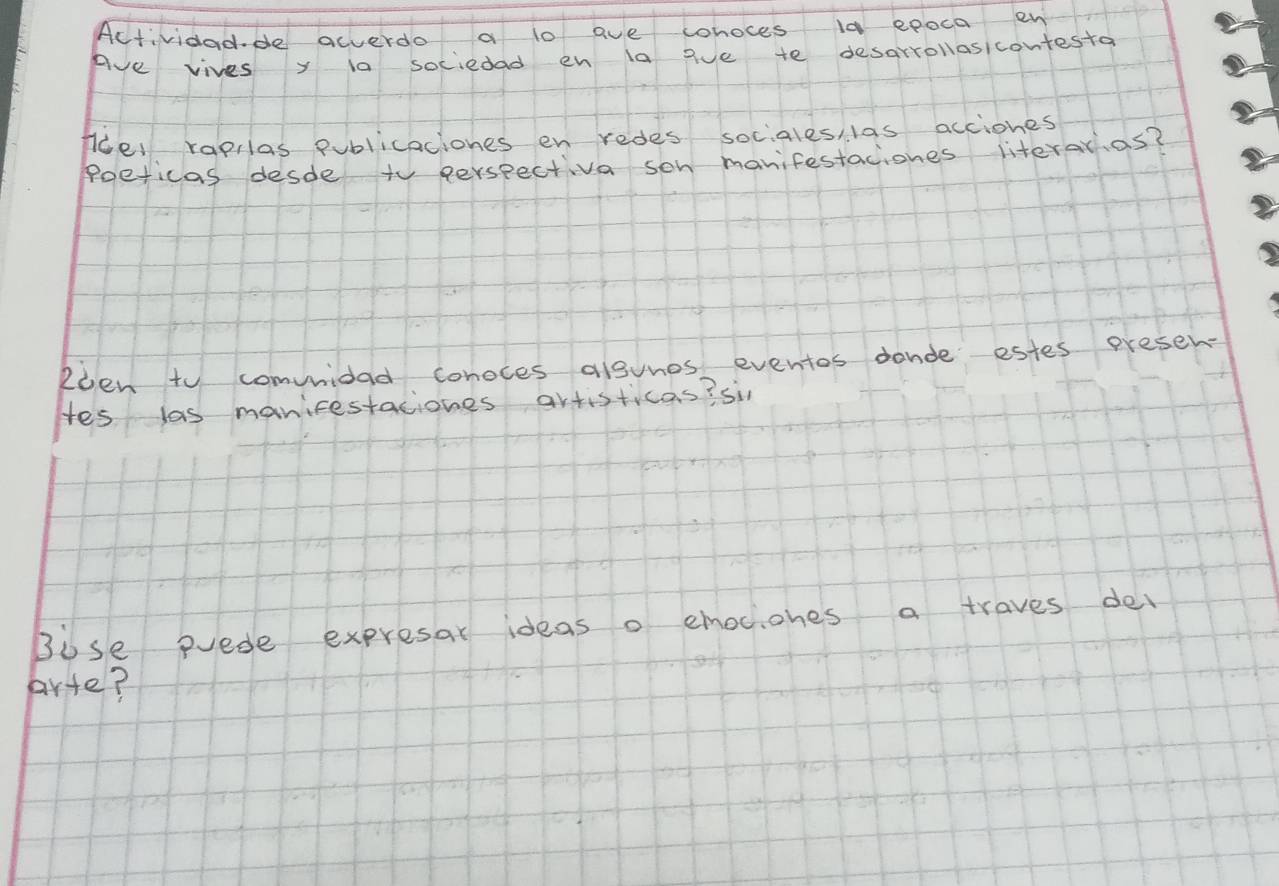 Actividad.de acuerdo a lo que conoces la epoca en
que vives y la sociedad en la que te desarrollas,contesta
1¿el rap,las publicaciones en redes sociales,las acciones
poeticas desde tu perspectiva son manifestaciones literarias?
2¿en tu comunidad conoces algunos eventos donde estes presen-
tes las manifestaciones artisticas?si,
3¿se puede expresar ideas o emociones a traves del
arte?